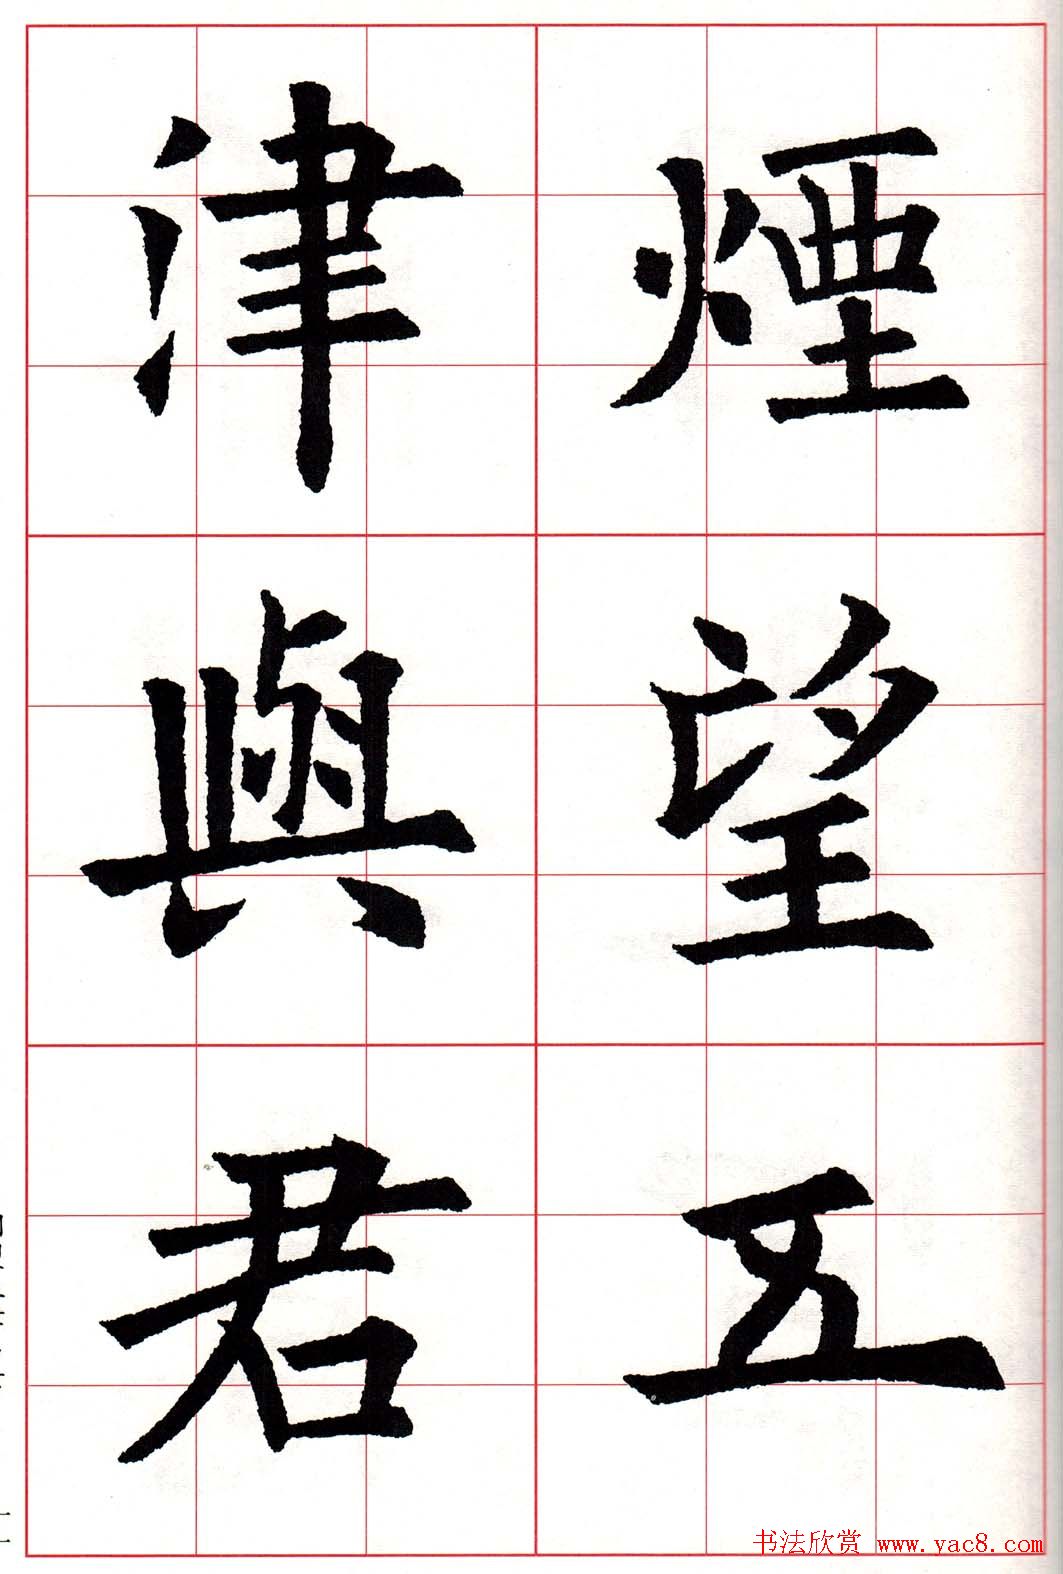 煙望五
津與君
书法欣赏 www.yac8.com